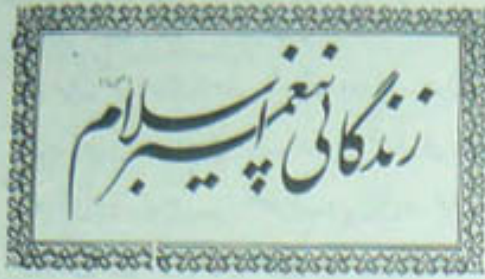 زندگانی پیغمبر اسلام